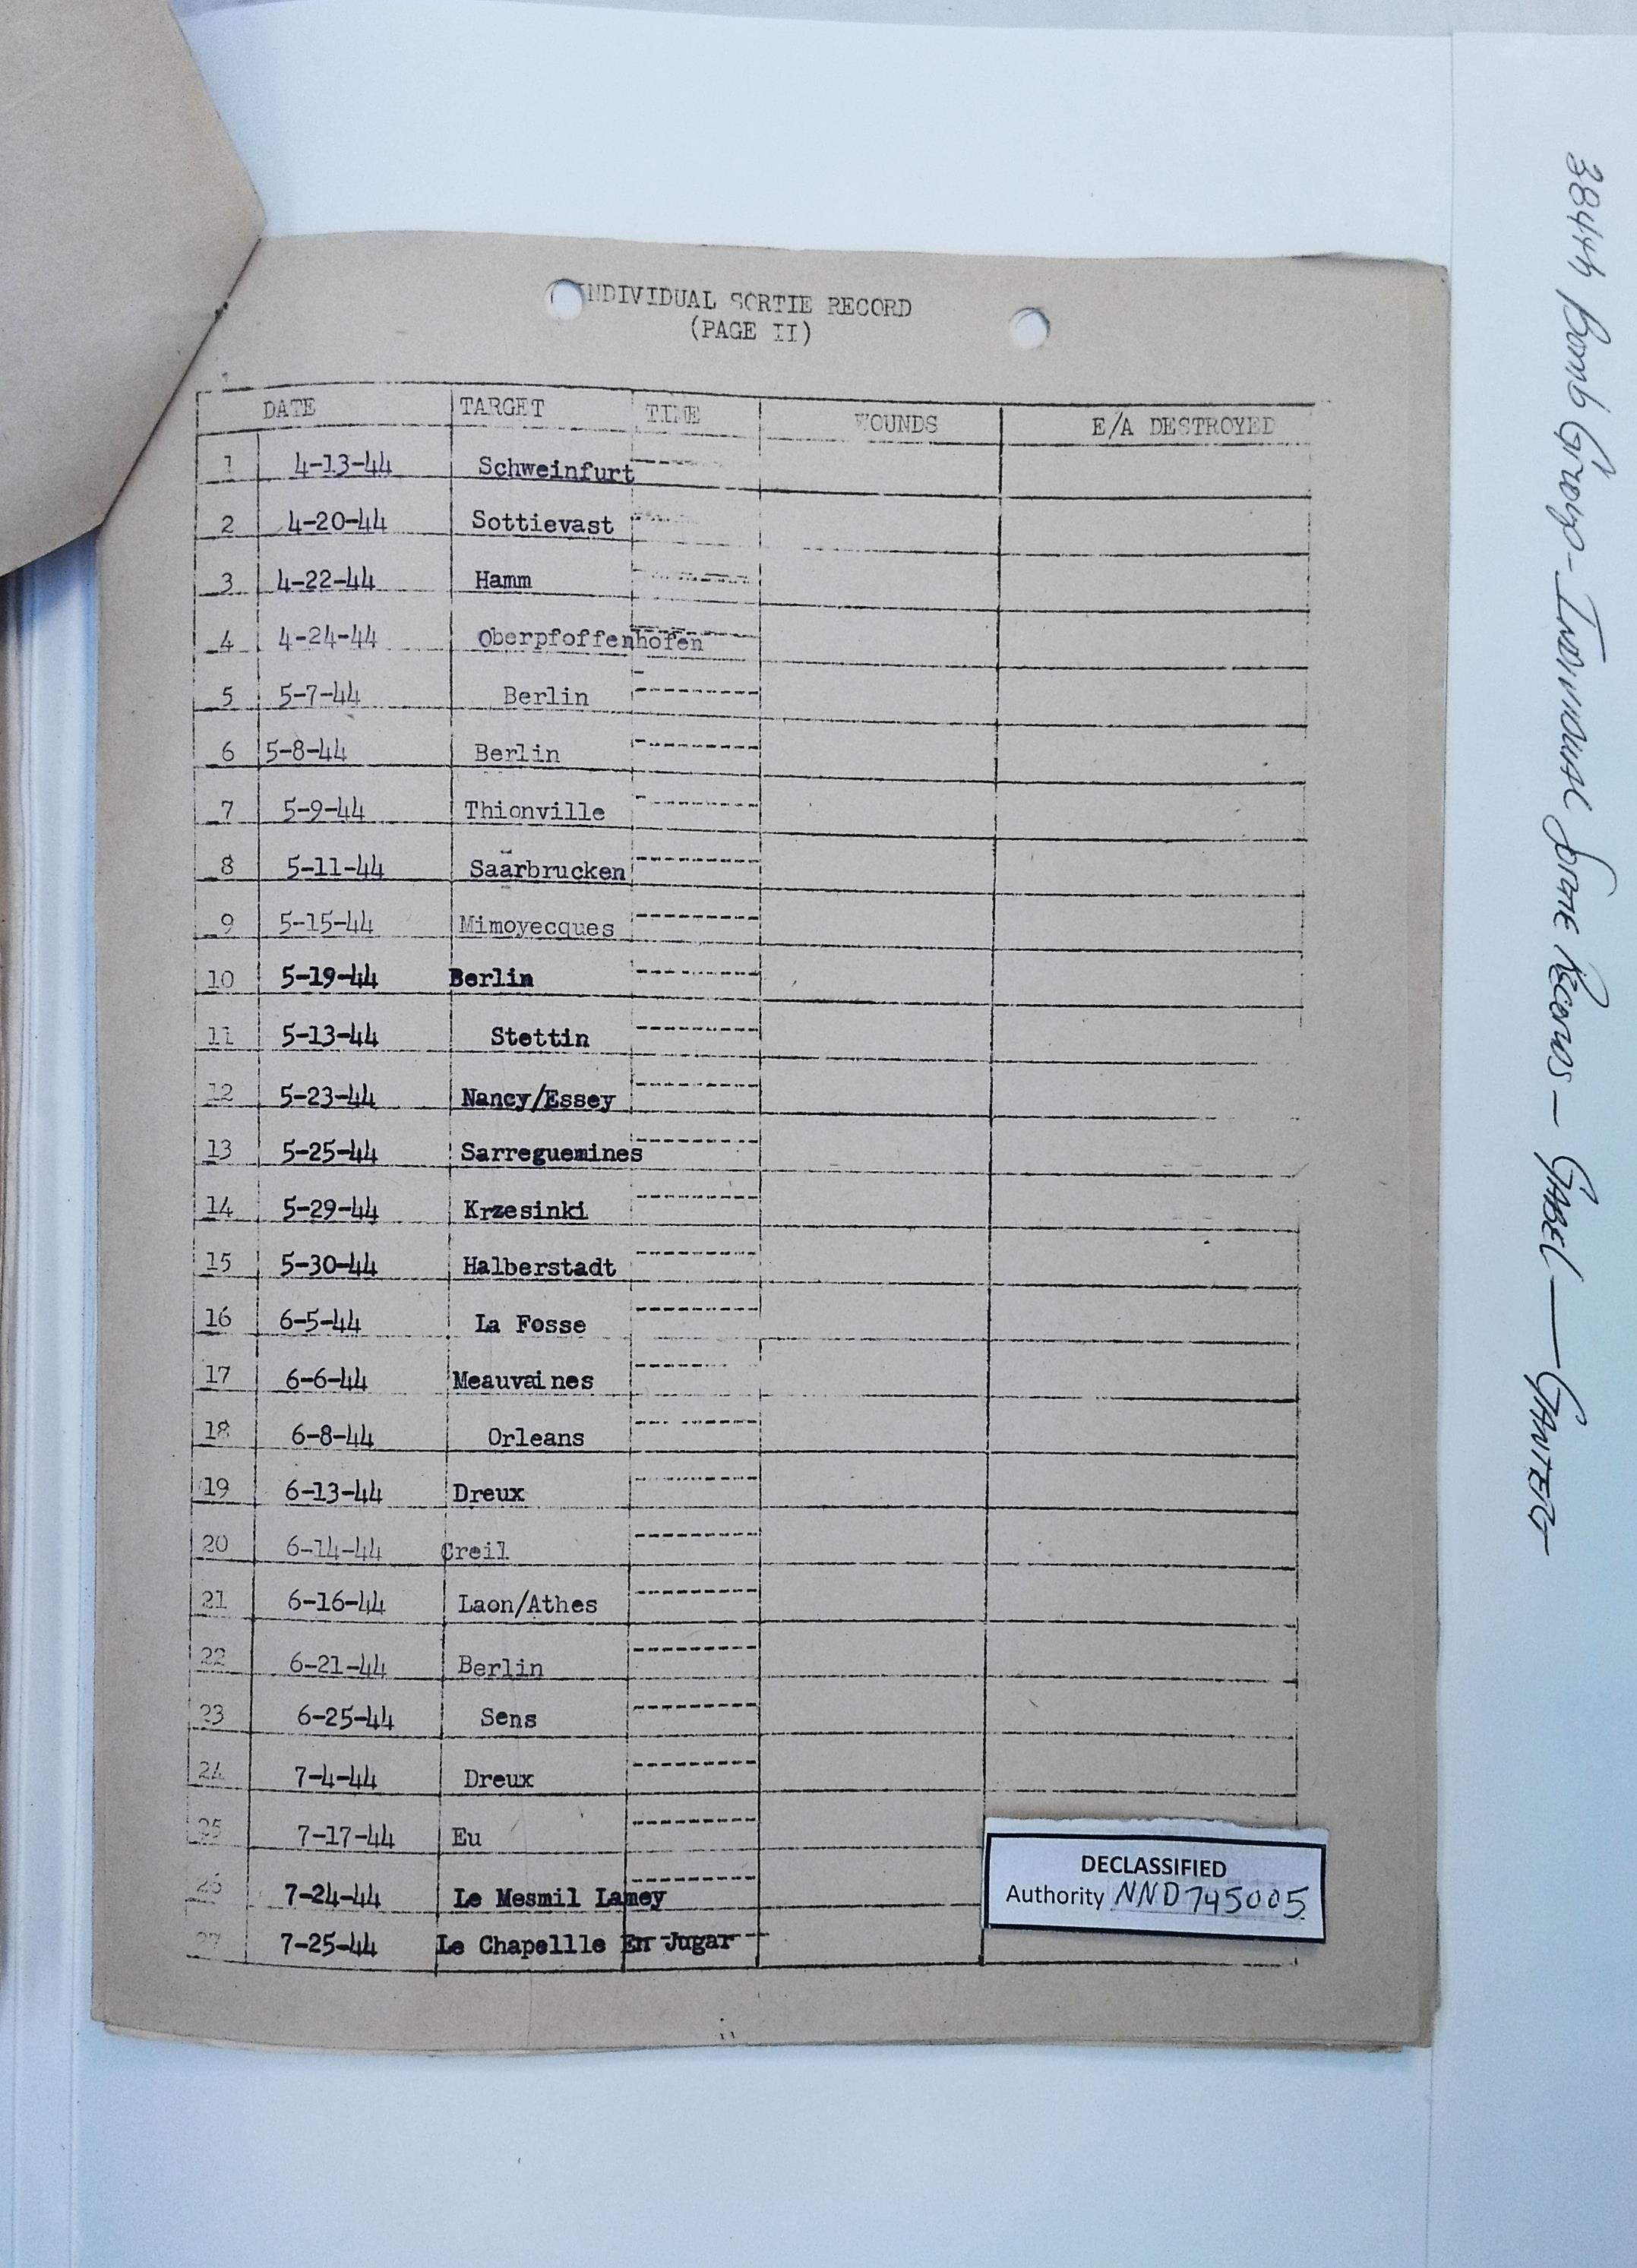 INDIVIDUAL SORTIE RECORD
(PAGE II)
DATE TARGET TIME WOUNDS E/A DESTROYED
1 4-13-44 Schweinfurt
2 4-20-44 Sottievast
3 4-22-44 Hamm
4 4-24-44 Oberpfoffenhofen
5 5-7-44 Berlin
6 5-8-44 Berlin
7 5-9-44 Thionville
8 5-11-44 Saarbrucken
9 5-15-44 Mimoyecques
10 5-19-44 Berlin
11 5-13-44 Stettin
12 5-23-44 Nancy/Essey
13 5-25-44 Sarreguemines
14 5-29-44 Krzesinki
15 5-30-44 Halberstadt
16 6-5-44 La Fosse
17 6-6-44 Meauvaines
18 6-8-44 Orleans
19 6-13-44 Dreux
20 6-14-44 Creil
21 6-16-44 Laon/Athes
22 6-21-44 Berlin
23 6-25-44 Sens
24 7-4-44 Dreux
25 7-17-44 Eu
26 7-24-44 Le Mesmil Lamey
27 7-25-44 Le Chapellle En Jugar
DECLASSIFIED
Authority NND 745005
384th Bomb Group - INDIVIDUAL SORTIE RECORDS - GABEL — GANTERT